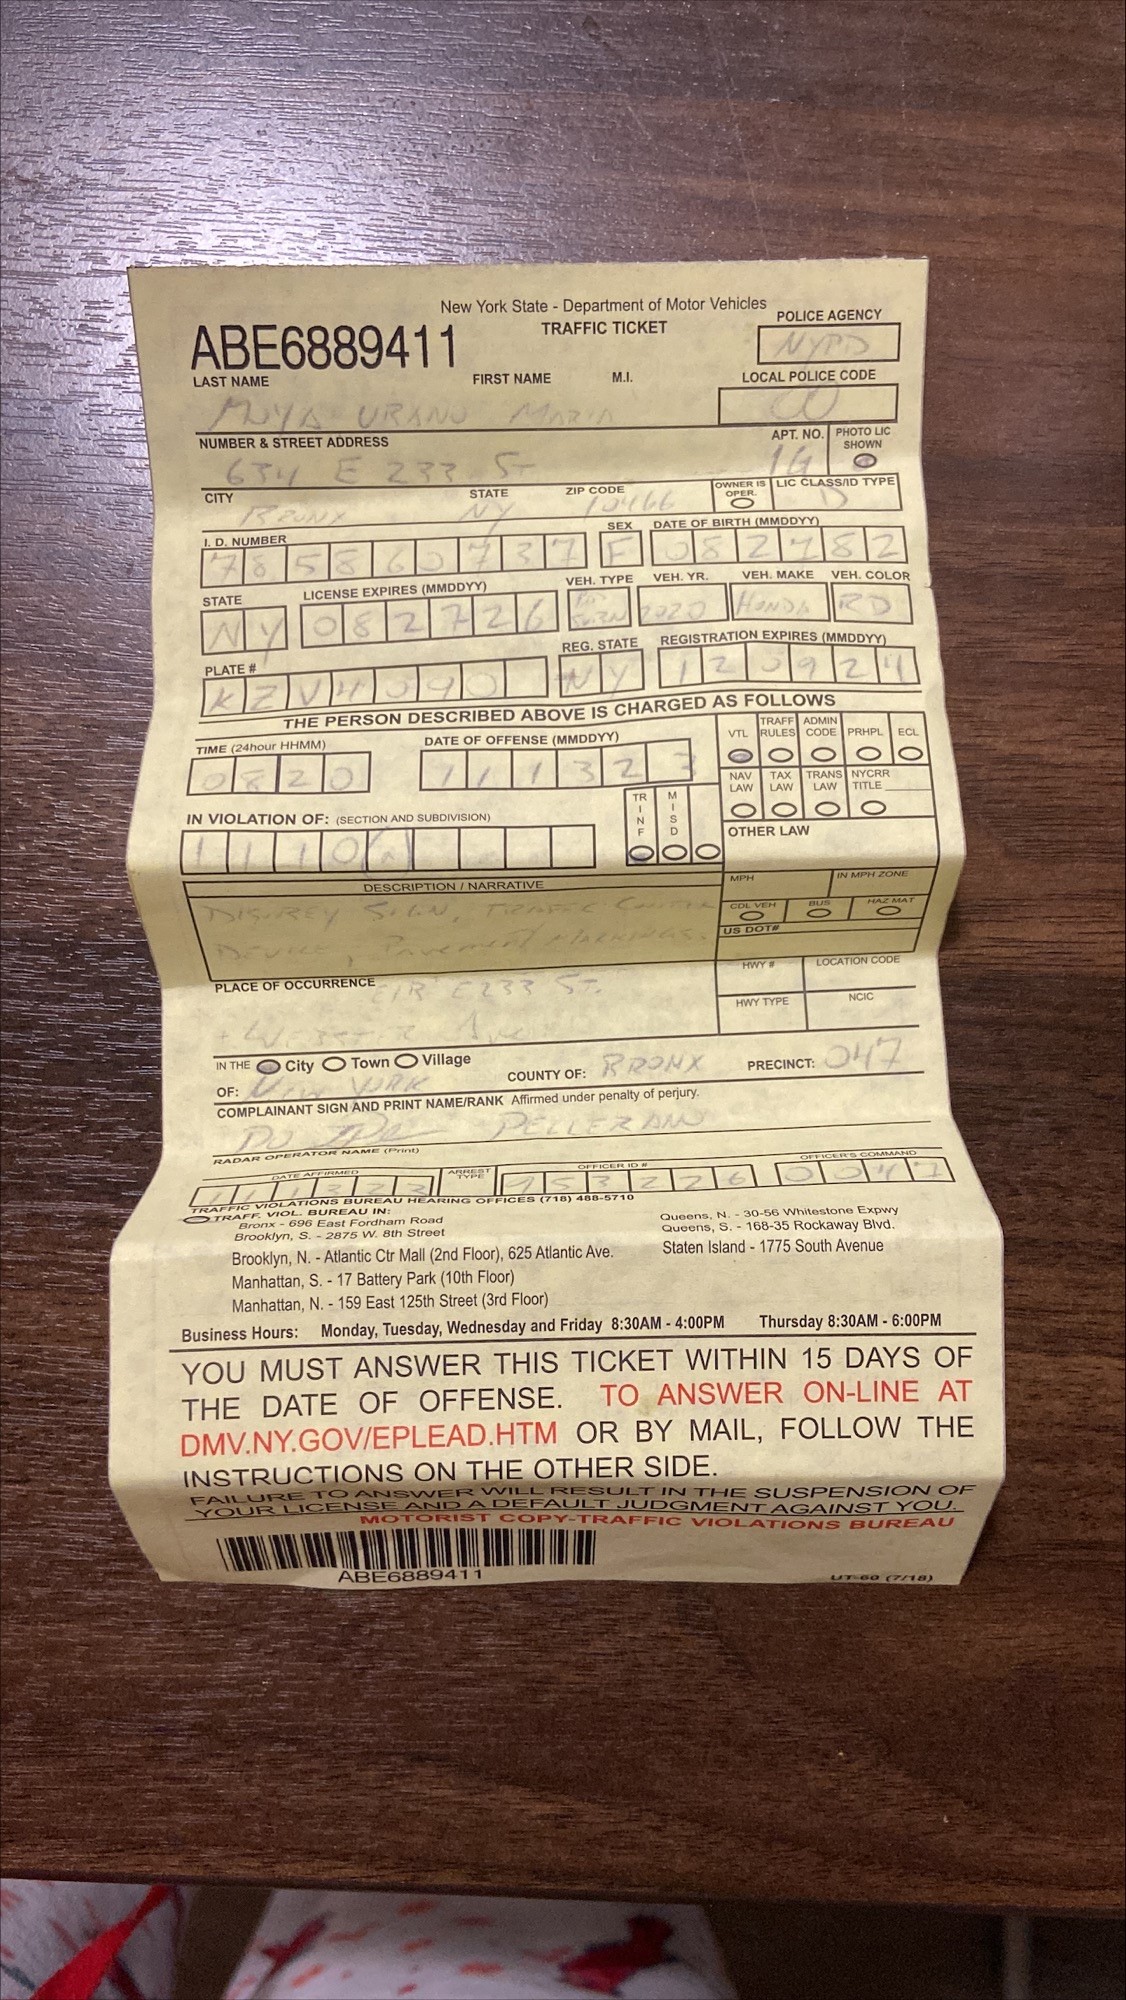 New York State - Department of Motor Vehicles
ABE6889411 TRAFFIC TICKET POLICE AGENCY
NYPD
LAST NAME FIRST NAME M.I. LOCAL POLICE CODE
MOYA URANO MARIA
NUMBER & STREET ADDRESS APT. NO. PHOTO LIC SHOWN
634 E 233 ST 1G
CITY STATE ZIP CODE OWNER IS OPER. LIC CLASS/ID TYPE
BRONX NY 10466 D
I. D. NUMBER SEX DATE OF BIRTH (MMDDYY)
785860737 F 082782
STATE LICENSE EXPIRES (MMDDYY) VEH. TYPE VEH. YR. VEH. MAKE VEH. COLOR
NY 082726 SUBN 2020 HONDA RD
PLATE # REG. STATE REGISTRATION EXPIRES (MMDDYY)
KZV4090 NY 120924
THE PERSON DESCRIBED ABOVE IS CHARGED AS FOLLOWS
TIME (24hour HHMM) DATE OF OFFENSE (MMDDYY) VTL TRAFF RULES ADMIN CODE PRHPL ECL
0820 111323
NAV LAW TAX LAW TRANS LAW NYCRR TITLE
IN VIOLATION OF: (SECTION AND SUBDIVISION) TR INF MISD OTHER LAW
1110(a)
DESCRIPTION / NARRATIVE MPH IN MPH ZONE
DISOBEY SIGN, TRAFFIC CONTROL CDL VEH BUS HAZ MAT
DEVICE, PAVEMENT MARKINGS. US DOT#
PLACE OF OCCURRENCE E233 ST. HWY # LOCATION CODE
+ WEBSTER Ave HWY TYPE NCIC
IN THE City Town Village
OF: NEW YORK COUNTY OF: BRONX PRECINCT: 047
COMPLAINANT SIGN AND PRINT NAME/RANK Affirmed under penalty of perjury.
PO PELLERANO
RADAR OPERATOR NAME (Print)
DATE AFFIRMED ARREST TYPE OFFICER ID # OFFICER'S COMMAND
111323 953226 0047
TRAFFIC VIOLATIONS BUREAU HEARING OFFICES (718) 488-5710
TRAFF. VIOL. BUREAU IN:
Bronx - 696 East Fordham Road Queens, N. - 30-56 Whitestone Expwy
Brooklyn, S. - 2875 W. 8th Street Queens, S. - 168-35 Rockaway Blvd.
Brooklyn, N. - Atlantic Ctr Mall (2nd Floor), 625 Atlantic Ave. Staten Island - 1775 South Avenue
Manhattan, S. - 17 Battery Park (10th Floor)
Manhattan, N. - 159 East 125th Street (3rd Floor)
Business Hours: Monday, Tuesday, Wednesday and Friday 8:30AM - 4:00PM Thursday 8:30AM - 6:00PM
YOU MUST ANSWER THIS TICKET WITHIN 15 DAYS OF
THE DATE OF OFFENSE. TO ANSWER ON-LINE AT
DMV.NY.GOV/EPLEAD.HTM OR BY MAIL, FOLLOW THE
INSTRUCTIONS ON THE OTHER SIDE.
FAILURE TO ANSWER WILL RESULT IN THE SUSPENSION OF
YOUR LICENSE AND A DEFAULT JUDGMENT AGAINST YOU.
MOTORIST COPY-TRAFFIC VIOLATIONS BUREAU
ABE6889411 UT-60 (7/18)